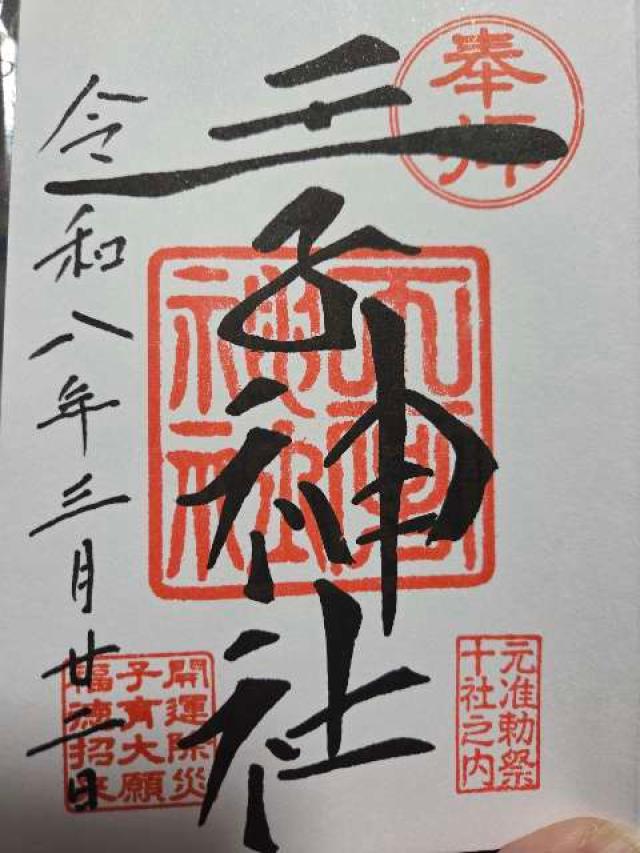 奉拝
王子神社
元准勅祭
十社之内
開運除災
子育大願
福徳招来
令和八年三月廿二日